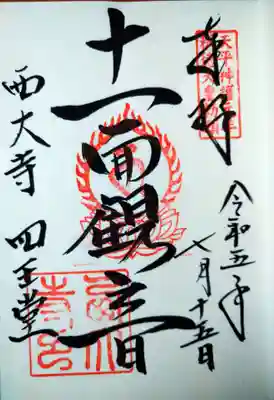 奉拝
令和五年
七月十五日
十一面観音
西大寺 四王堂